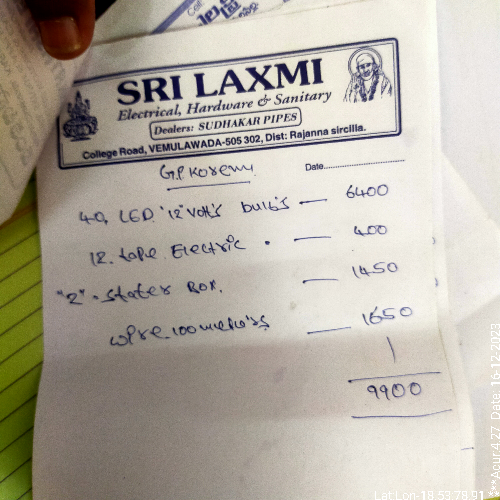 SRI LAXMI
Electrical, Hardware & Sanitary
Dealers: SUDHAKAR PIPES
College Road, VEMULAWADA-505 302, Dist: Rajanna sircilla.
G.P Korem Date
40, LED "12" volts bulbs — 6400
12. tape Electric . — 400
"2" . stater Box. — 1450
wire 100 meters — 1650
9900
Lat Lon-18.53.78.91